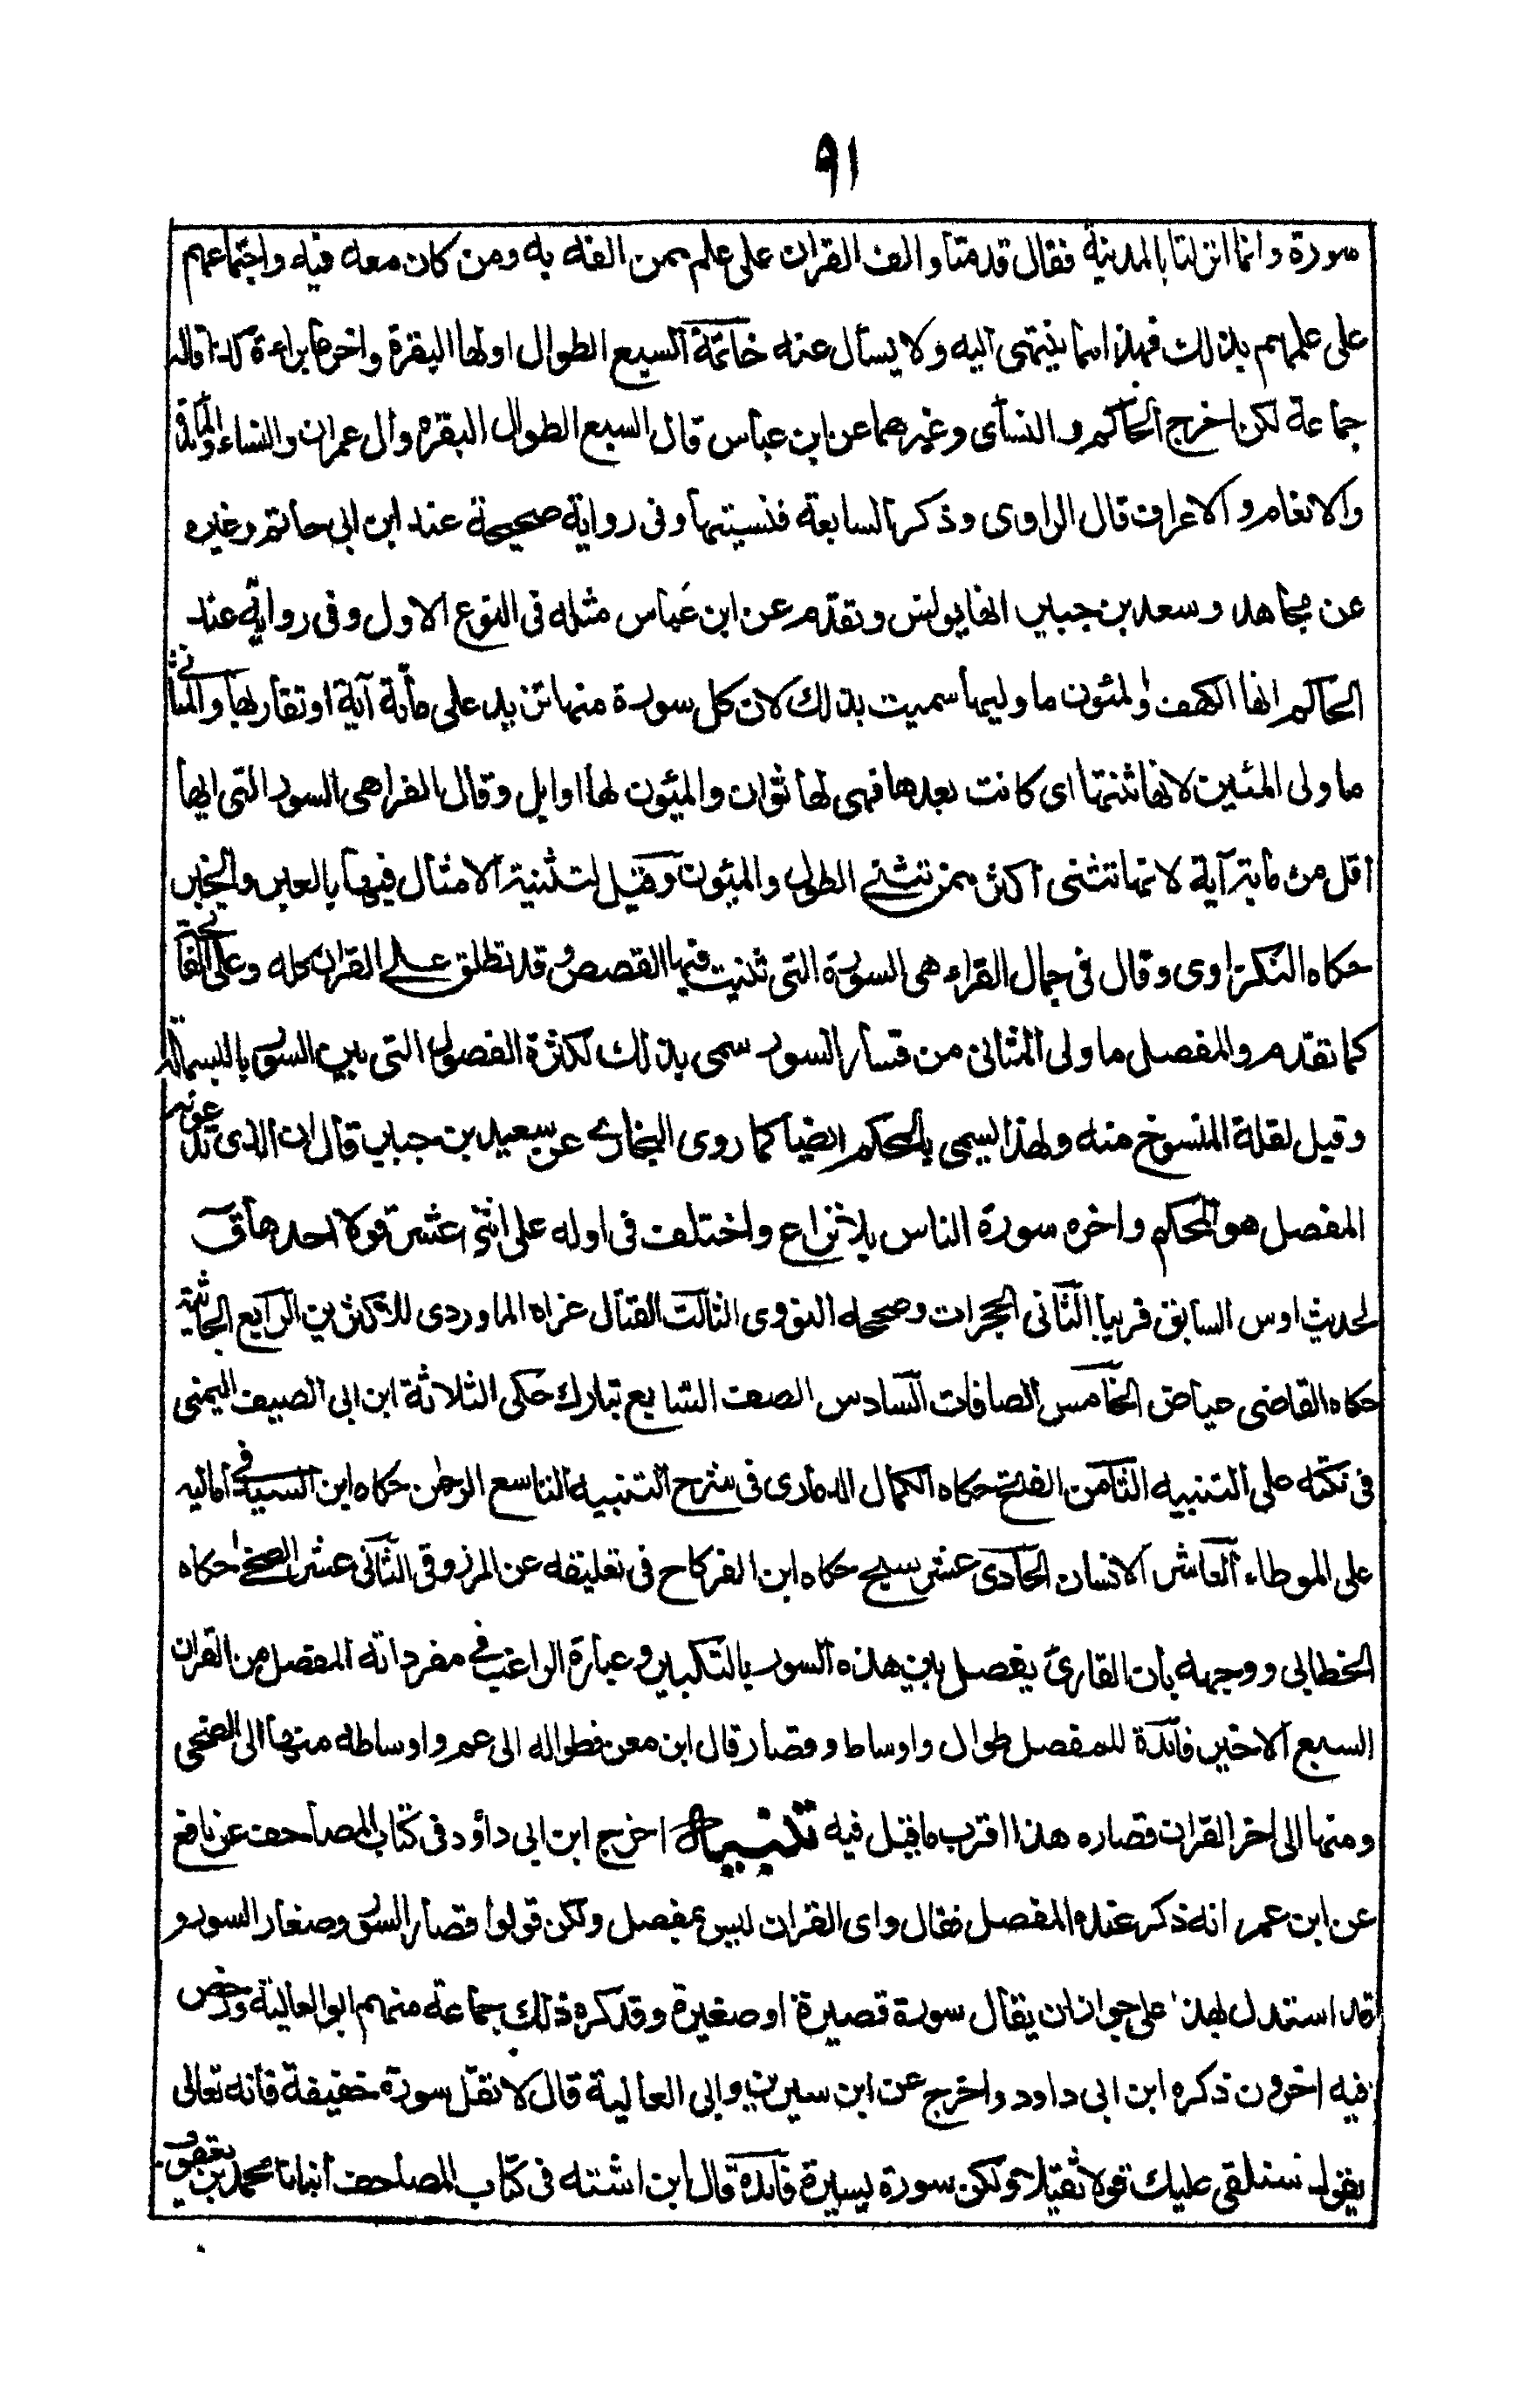 ٩١
سورة وانما انزلتا بالمدنية فقال قدمتا والف القران على علم ممن الفه به ومن كان معه فيه واجتماعهم
على علمهم بذلك فهذا مما ينتهى اليه ولا يسأل عنه خاتمة السبع الطوال اولها البقرة واخرها براءة كذا قاله
جماعة لكن اخرج الحاكم والنسأى وغيرهما عن ابن عباس قال السبع الطوال البقرة وال عمران والنساء والمائدة
والانعام والاعراف قال الراوى وذكر السابعة فنسيتها وفى رواية صحيحة عند ابن ابى حاتم وغيره
عن مجاهد وسعد بن جبير انها يونس وتقدم عن ابن عباس مثله فى النوع الاول وفى رواية عند
الحاكم انها الكهف والمئون ما وليها سميت بذلك لان كل سورة منها تزيد على مأية آية او تقاربها والمثانى
ما ولى المئين لانها ثنتها اى كانت بعدها فهى لها ثوان والمئون لها اوايل وقال الفراهى السور التى ايها
اقل من ماية آية لانها تثنى اكثر مما تثنى الطول والميون وقيل لتثنية الامثال فيها بالعبر والخبر
حكاه النكزاوى وقال فى جمال القراء هى السورة التى ثنيت فيها القصص وقد تطلق على القران كله وعلى الفاتحة
كما تقدم والمفصل ما ولى المثانى من قصار السور سمى بذلك لكثرة الفصول التى بين السور بالبسملة
وقيل لقلة المنسوخ منه ولهذا يسمى بالمحكم ايضا كما روى البخارى عن سعيد بن جبير قال ان الذى تدعونه
المفصل هو المحكم واخره سورة الناس بلا نزاع واختلف فى اوله على اثنى عشرة قولا احدها ق
لحديث اوس السابق قريبا الثانى الحجرات وصححه النووى الثالث القتال عزاه الماوردى للاكثرين الرابع الجاثية
حكاه القاضى عياض الخامس الصافات السادس الصف السابع تبارك حكى الثلاثة ابن ابى الصيف اليمنى
فى نكته على التنبيه الثامن الفتح حكاه الكمال الدمارى فى شرح التنبيه التاسع الرحمن حكاه ابن السيد فى اماليه
على الموطاء العاشر الانسان الحادى عشر سبح حكاه ابن الفركاح فى تعليقه عن المرزوقى الثانى عشر الضحى حكاه
الخطابى ووجهه بان القارئ يفصل بين هذه السور بالتكبير وعبارة الراغب فى مفرداته المفصل من القران
السبع الاخير فائدة للمفصل طوال واوساط وقصار قال ابن معن فطواله الى عم واوساطه منها الى الضحى
ومنها الى اخر القران قصاره هذا اقرب ما قيل فيه تنبيه اخرج ابن ابى داؤد فى كتاب المصاحف عن نافع
عن ابن عمر انه ذكر عنده المفصل فقال واى القران ليس بمفصل ولكن قولوا قصار السور وصغار السور و
قد استدل بهذا على جواز ان يقال سورة قصيرة او صغيرة وقد كره ذلك جماعة منهم ابو العالية ورخص
فيه اخرون ذكره ابن ابى داود واخرج عن ابن سيرين وابى العالية قال لا تقل سورة خفيفة فانه تعالى
يقول سنلقى عليك قولا ثقيلا ولكن سورة يسيرة فائدة قال ابن اشته فى كتاب المصاحف انبانا محمد بن يعقوب